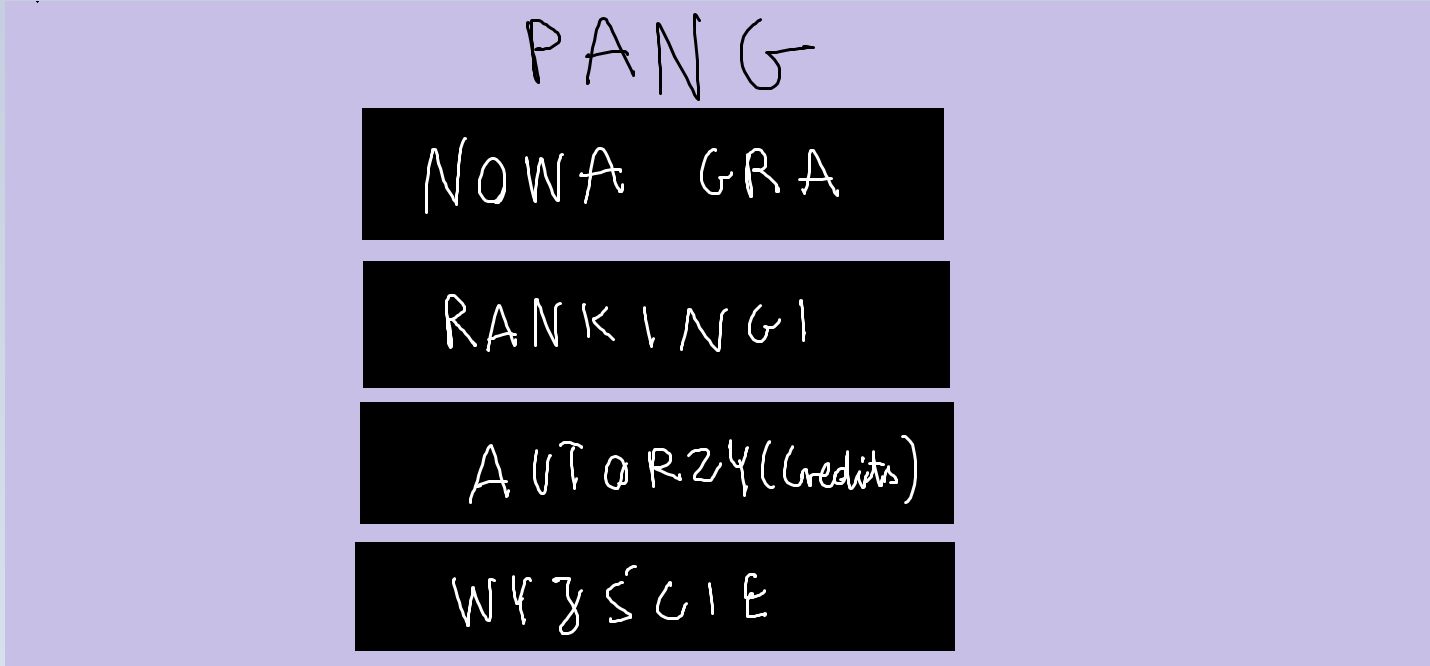 PANG
NOWA GRA
RANKINGI
AUTORZY (Credits)
WYJŚCIE